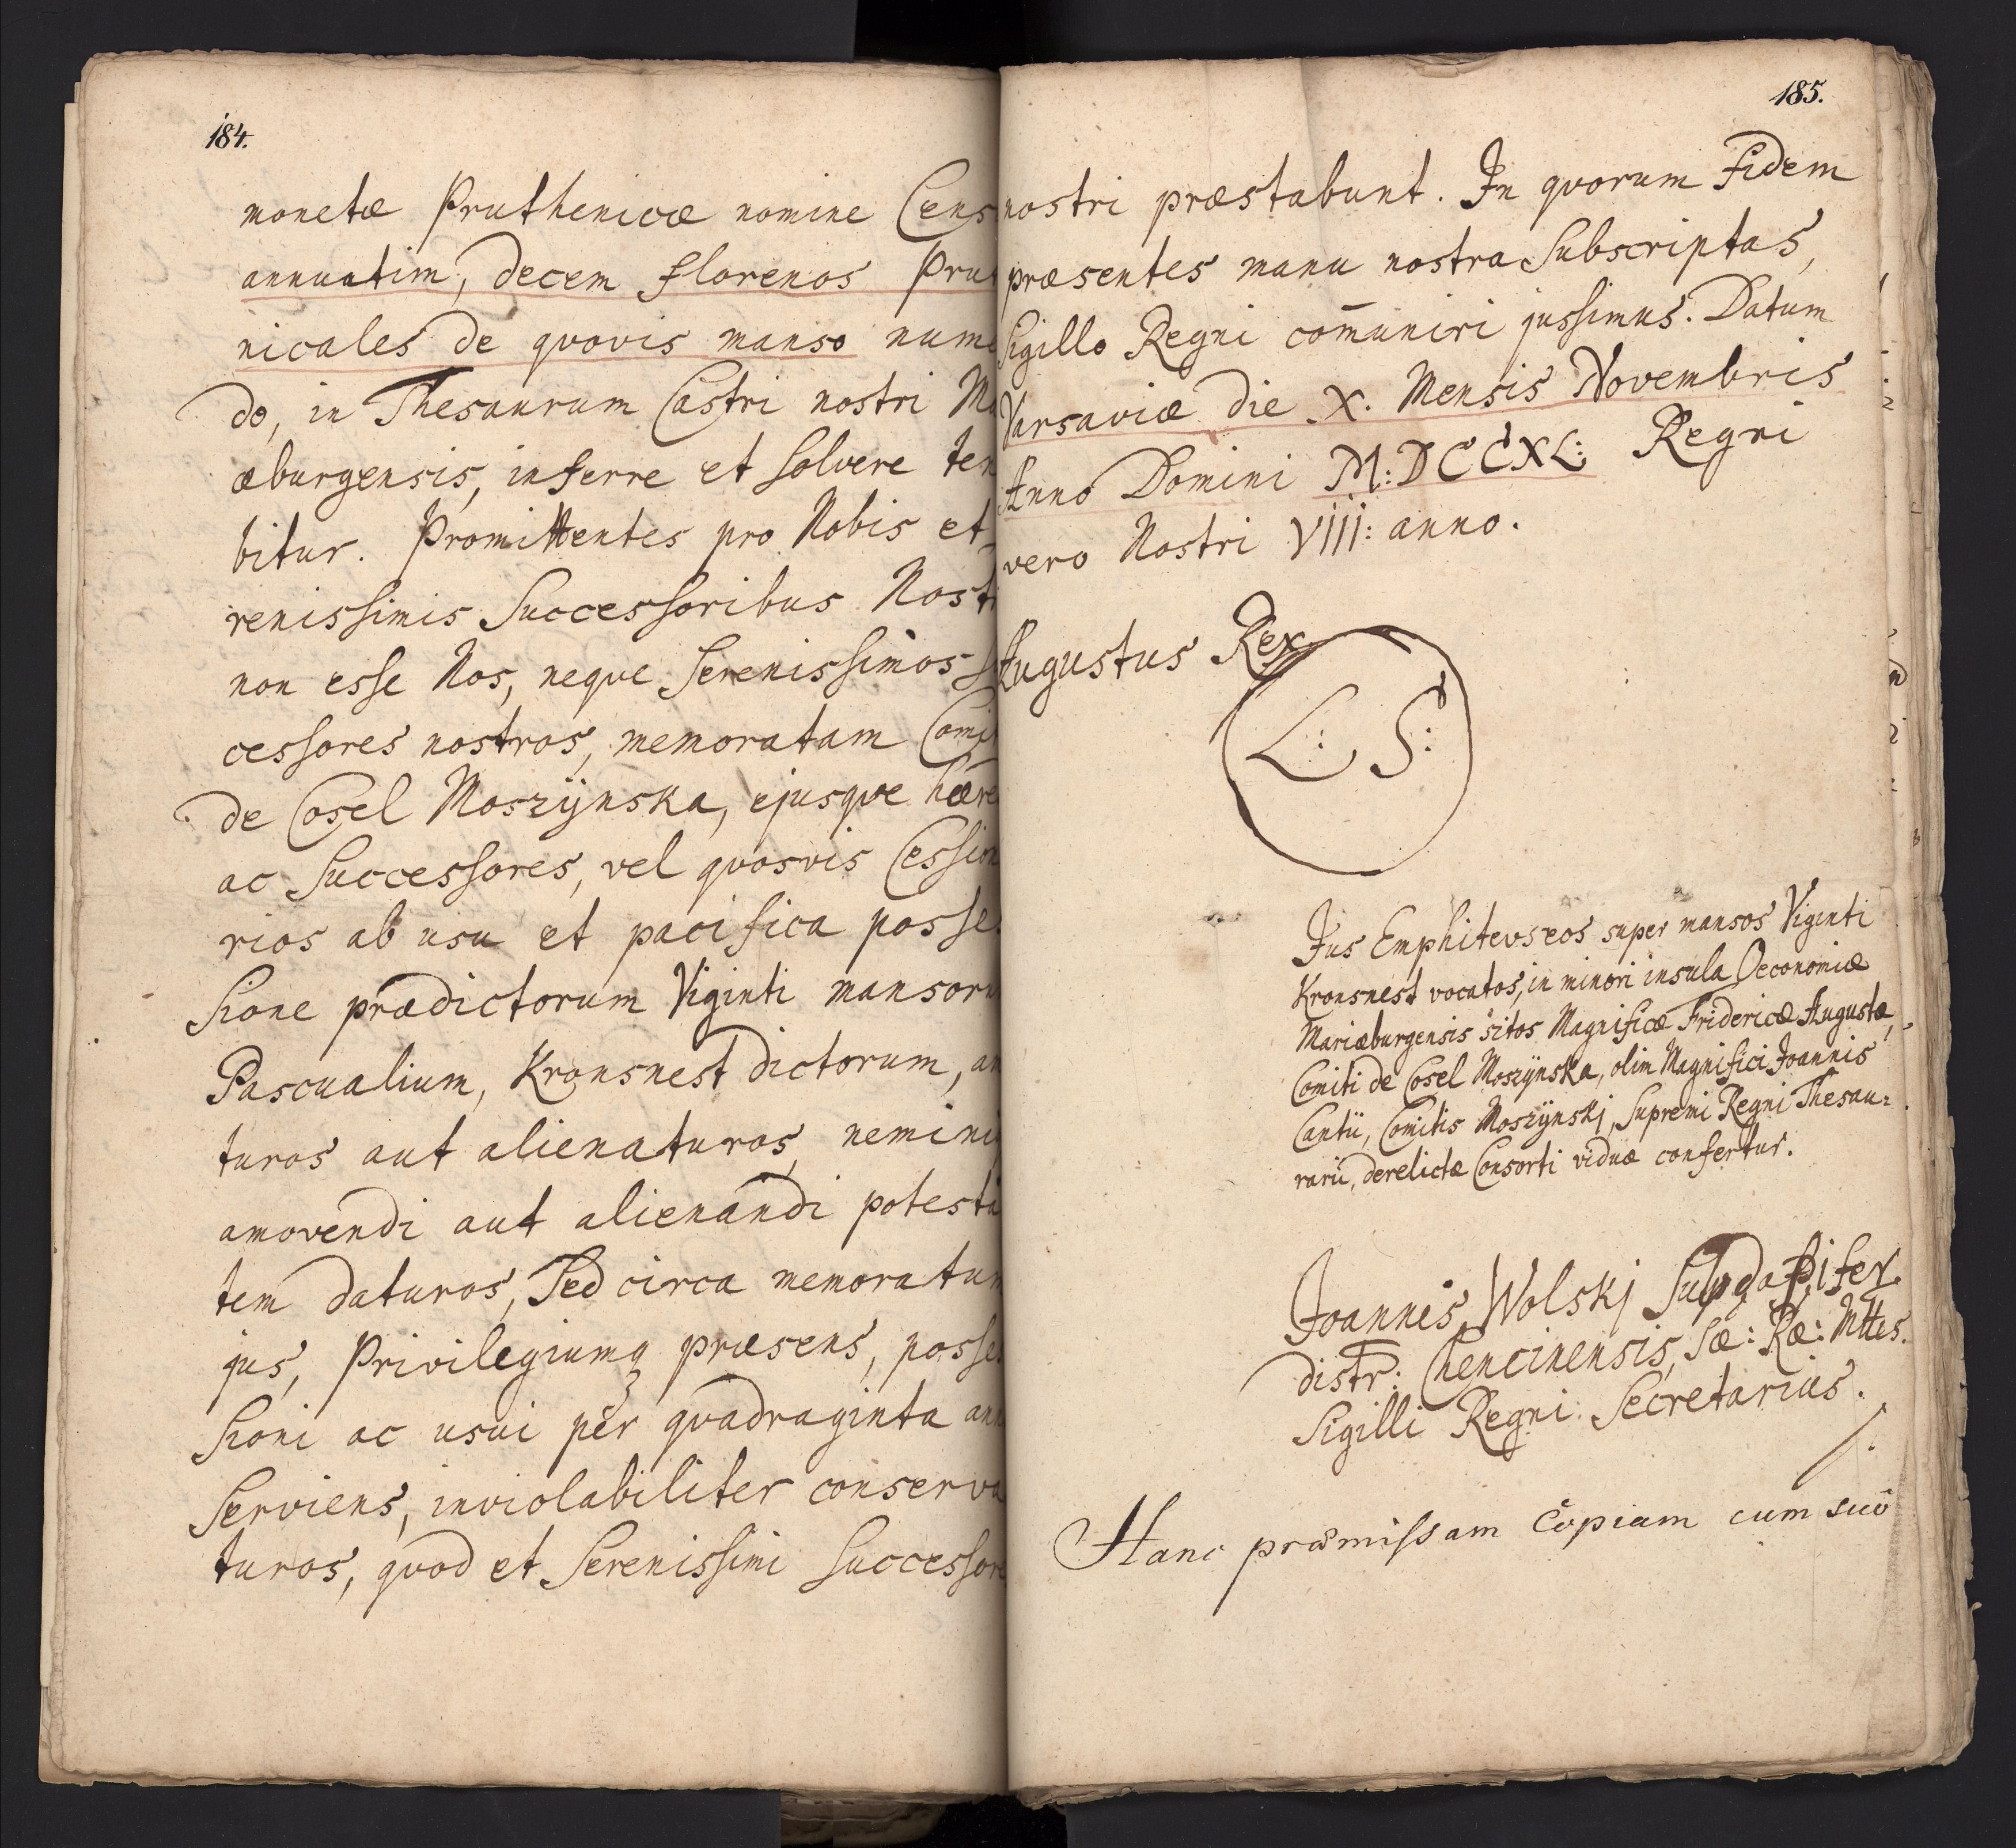 184.
monetæ Pruthenicæ nomine Cens
annuatim, decem florenos Prut
nicales de qvovis manso nume
do, in Thesaurum Castri nostri Ma
æburgensis, inferre et solvere ten
bitur. Promittentes pro Nobis et
renissimis Successoribus Nostr
non esse Nos, neqve Serenissimos S
cessores nostros, memoratam Comit
de Cosel Moszÿnska, ejusqve hære
ac Successores, vel qvosvis Cession
rios ab usu et pacifica posses
sione prædictorum Viginti mansoru
Pascualium, Kronsnest dictorum, am
turos aut alienaturos, nemini
amovendi aut alienandi potesta
tem daturos, Sed circa memoratum
jus, Privilegiumq præsens, posses
sioni ac usui per qvadraginta ann
Serviens, inviolabiliter conserva
turos, qvod et Serenissimi Successore
185.
nostri præstabunt. In qvorum Fidem
præsentes manu nostra Subscriptas,
Sigillo Regni com̄uniri jussimus. Datum
Varsaviæ die X. Mensis Novembris
Anno Domini M:DCCXL: Regni
vero Nostri VIII: anno.
Augustus Rex
L: S:
Jus Emphitevseos super mansos Viginti
Kronsnest vocatos, in minori insula Oeconomiæ
Mariæburgensis sitos Magnificæ Fridericæ Augustæ,
Comiti de Cosel Moszÿnska, olim Magnifici Joannis
Cantii, Comitis Moszÿnskj, Supremi Regni Thesau:
rarii, derelictæ Consorti viduæ confertur.
Joannes Wolskj Subdapifer
distr: Chencinensis, Sæ: Ræ: Mttes.
Sigilli Regni Secretarius.
Hanc præmissam Copiam cum suo